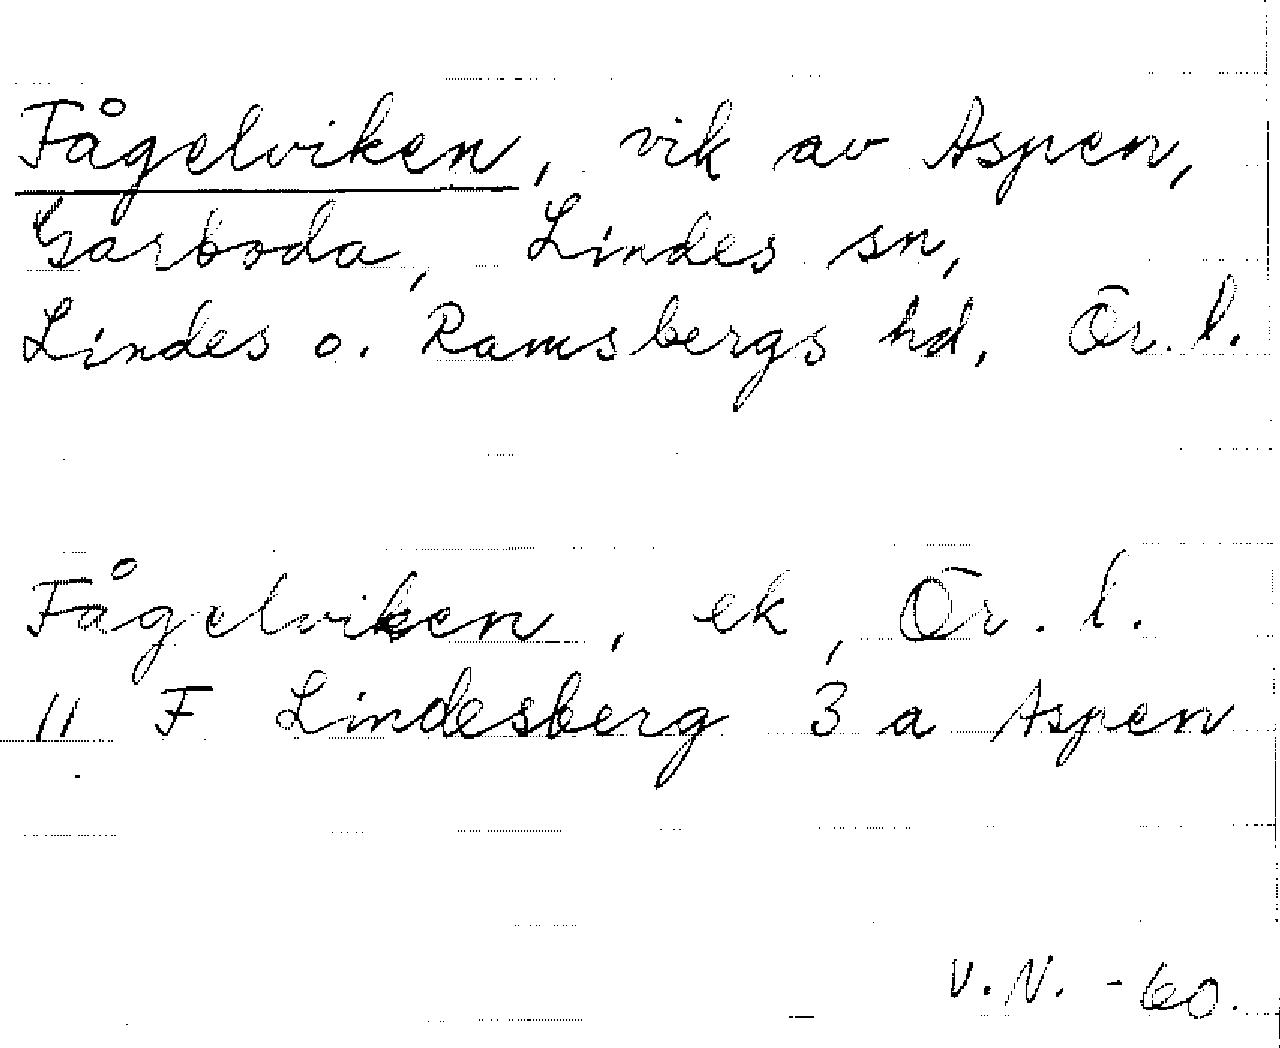 Fågelviken, vik av Aspen,
Garboda, Lindes sn,
Lindes o. Ramsbergs hd, Ör. l.
Fågelviken, ek, Ör. l.
11 F Lindesberg 3 a Aspen
V.N. -60.